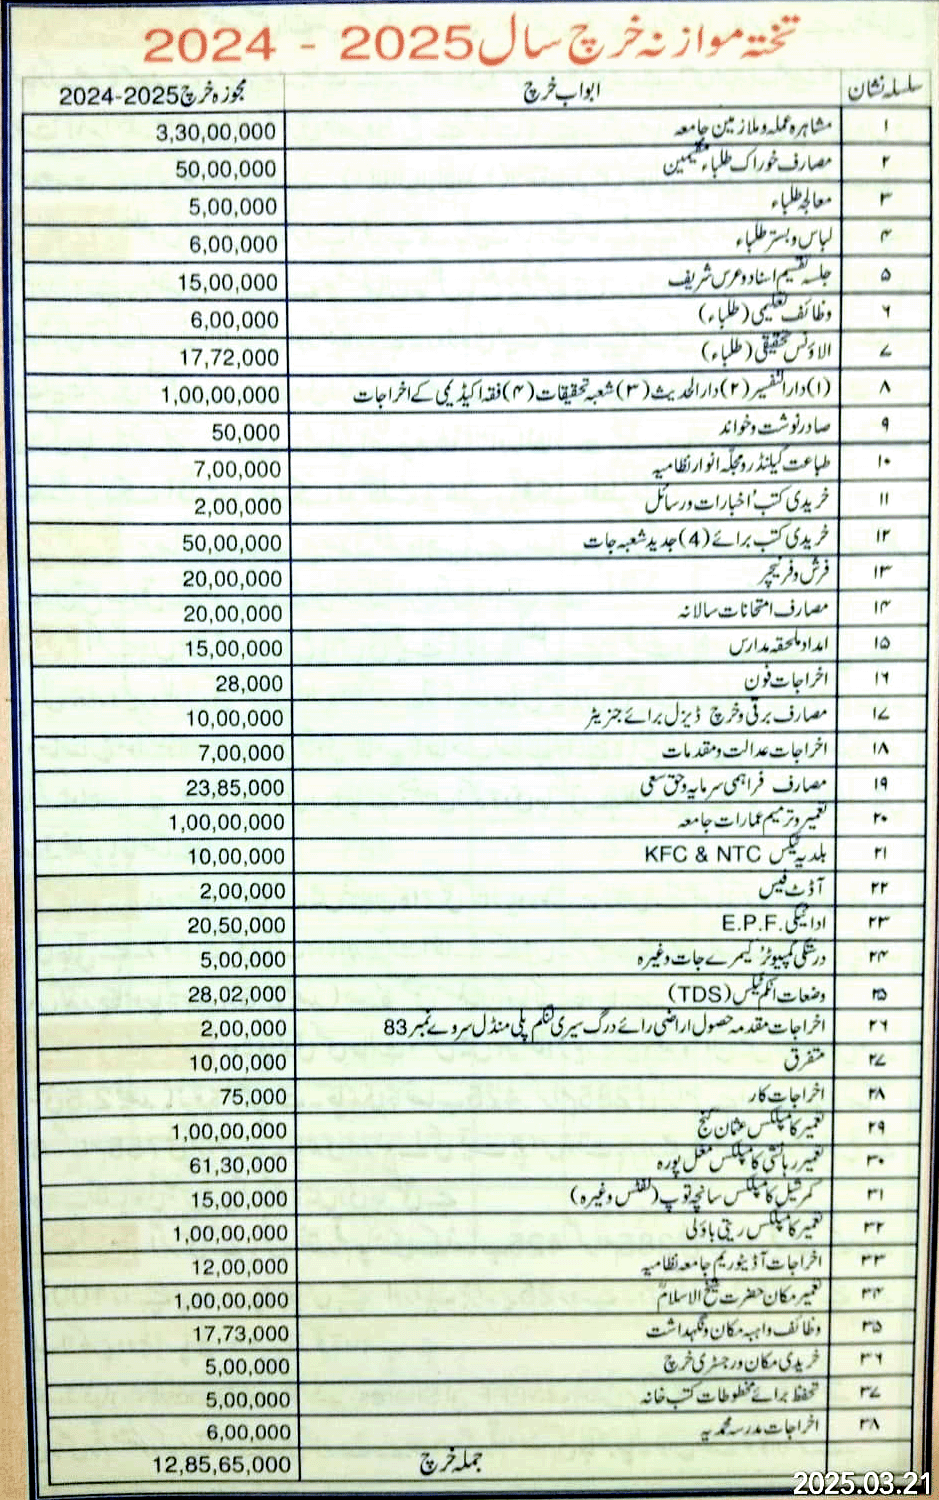 تختہ موازنہ خرچ سال 2025 - 2024
سلسلہ نشان ابواب خرچ مجوزہ خرچ 2025-2024
۱ مشاہرہ عملہ و ملازمین جامعہ 3,30,00,000
۲ مصارف خوراک طلباء مقیمین 50,00,000
۳ معالجہ طلباء 5,00,000
۴ لباس و بستر طلباء 6,00,000
۵ جلسہ تقسیم اسناد و عرس شریف 15,00,000
۶ وظائف تعلیمی (طلباء) 6,00,000
۷ الاؤنس تحقیقی (طلباء) 17,72,000
۸ (۱) دارالتفسیر (۲) دارالحدیث (۳) شعبہ تحقیقات (۴) فقہ اکیڈیمی کے اخراجات 1,00,00,000
۹ صادر نوشت و خواند 50,000
۱۰ طباعت کیلنڈر و مجلّہ انوار نظامیہ 7,00,000
۱۱ خریدی کتب' اخبارات و رسائل 2,00,000
۱۲ خریدی کتب برائے (4) جدید شعبہ جات 50,00,000
۱۳ فرش و فرنیچر 20,00,000
۱۴ مصارف امتحانات سالانہ 20,00,000
۱۵ امداد ملحقہ مدارس 15,00,000
۱۶ اخراجات فون 28,000
۱۷ مصارف برقی و خرچ ڈیزل برائے جنریٹر 10,00,000
۱۸ اخراجات عدالت و مقدمات 7,00,000
۱۹ مصارف فراہمی سرمایہ و حق سعی 23,85,000
۲۰ تعمیر و ترمیم عمارات جامعہ 1,00,00,000
۲۱ بلدیہ ٹیکس KFC & NTC 10,00,000
۲۲ آڈٹ فیس 2,00,000
۲۳ ادائیگی E.P.F. 20,50,000
۲۴ درستگی کمپیوٹر' کیمرے جات وغیرہ 5,00,000
۲۵ وضعات انکم ٹیکس (TDS) 28,02,000
۲۶ اخراجات مقدمہ حصول اراضی رائے درگ سیری لنگم پلی منڈل سروے نمبر 83 2,00,000
۲۷ متفرق 10,00,000
۲۸ اخراجات کار 75,000
۲۹ تعمیر کامپلکس عثمان گنج 1,00,00,000
۳۰ تعمیر رہائشی کامپلکس مغل پورہ 61,30,000
۳۱ کمرشیل کامپلکس سانچہ توپ (لفٹس وغیرہ) 15,00,000
۳۲ تعمیر کامپلکس ریتی باؤلی 1,00,00,000
۳۳ اخراجات آڈیٹوریم جامعہ نظامیہ 12,00,000
۳۴ تعمیر مکان حضرت شیخ الاسلامؒ 1,00,00,000
۳۵ وظائف واہبہ مکان و نگہداشت 17,73,000
۳۶ خریدی مکان و رجسٹری خرچ 5,00,000
۳۷ تحفظ برائے مخطوطات کتب خانہ 5,00,000
۳۸ اخراجات مدرسہ محمدیہ 6,00,000
جملہ خرچ 12,85,65,000
2025.03.21